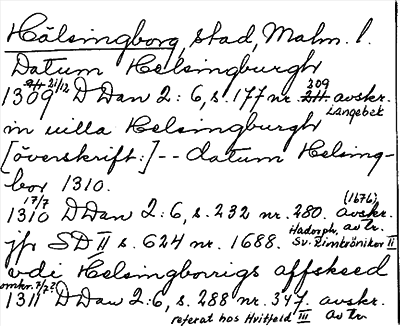 Hälsingborg, stad, Malm. l.
Datum Helsingburgh
21/12 309
1309 DDan 2:6, s. 177 nr. avskr.
Langebek
in uilla Helsingburgh
[överskrift:] -- datum Helsing-
bor 1310.
17/7 (1676)
1310 DDan 2:6, s. 232 nr. 280. avskr.
Hadorph, av Tr.
jfr SD II s. 624 nr. 1688. Sv. Rimkrönikor II
vdi Helsingborrigs affsked
omkr. 7/7?
1311 DDan 2:6, s. 288 nr. 347. avskr.
referat hos Hvitfeld III av Tr.